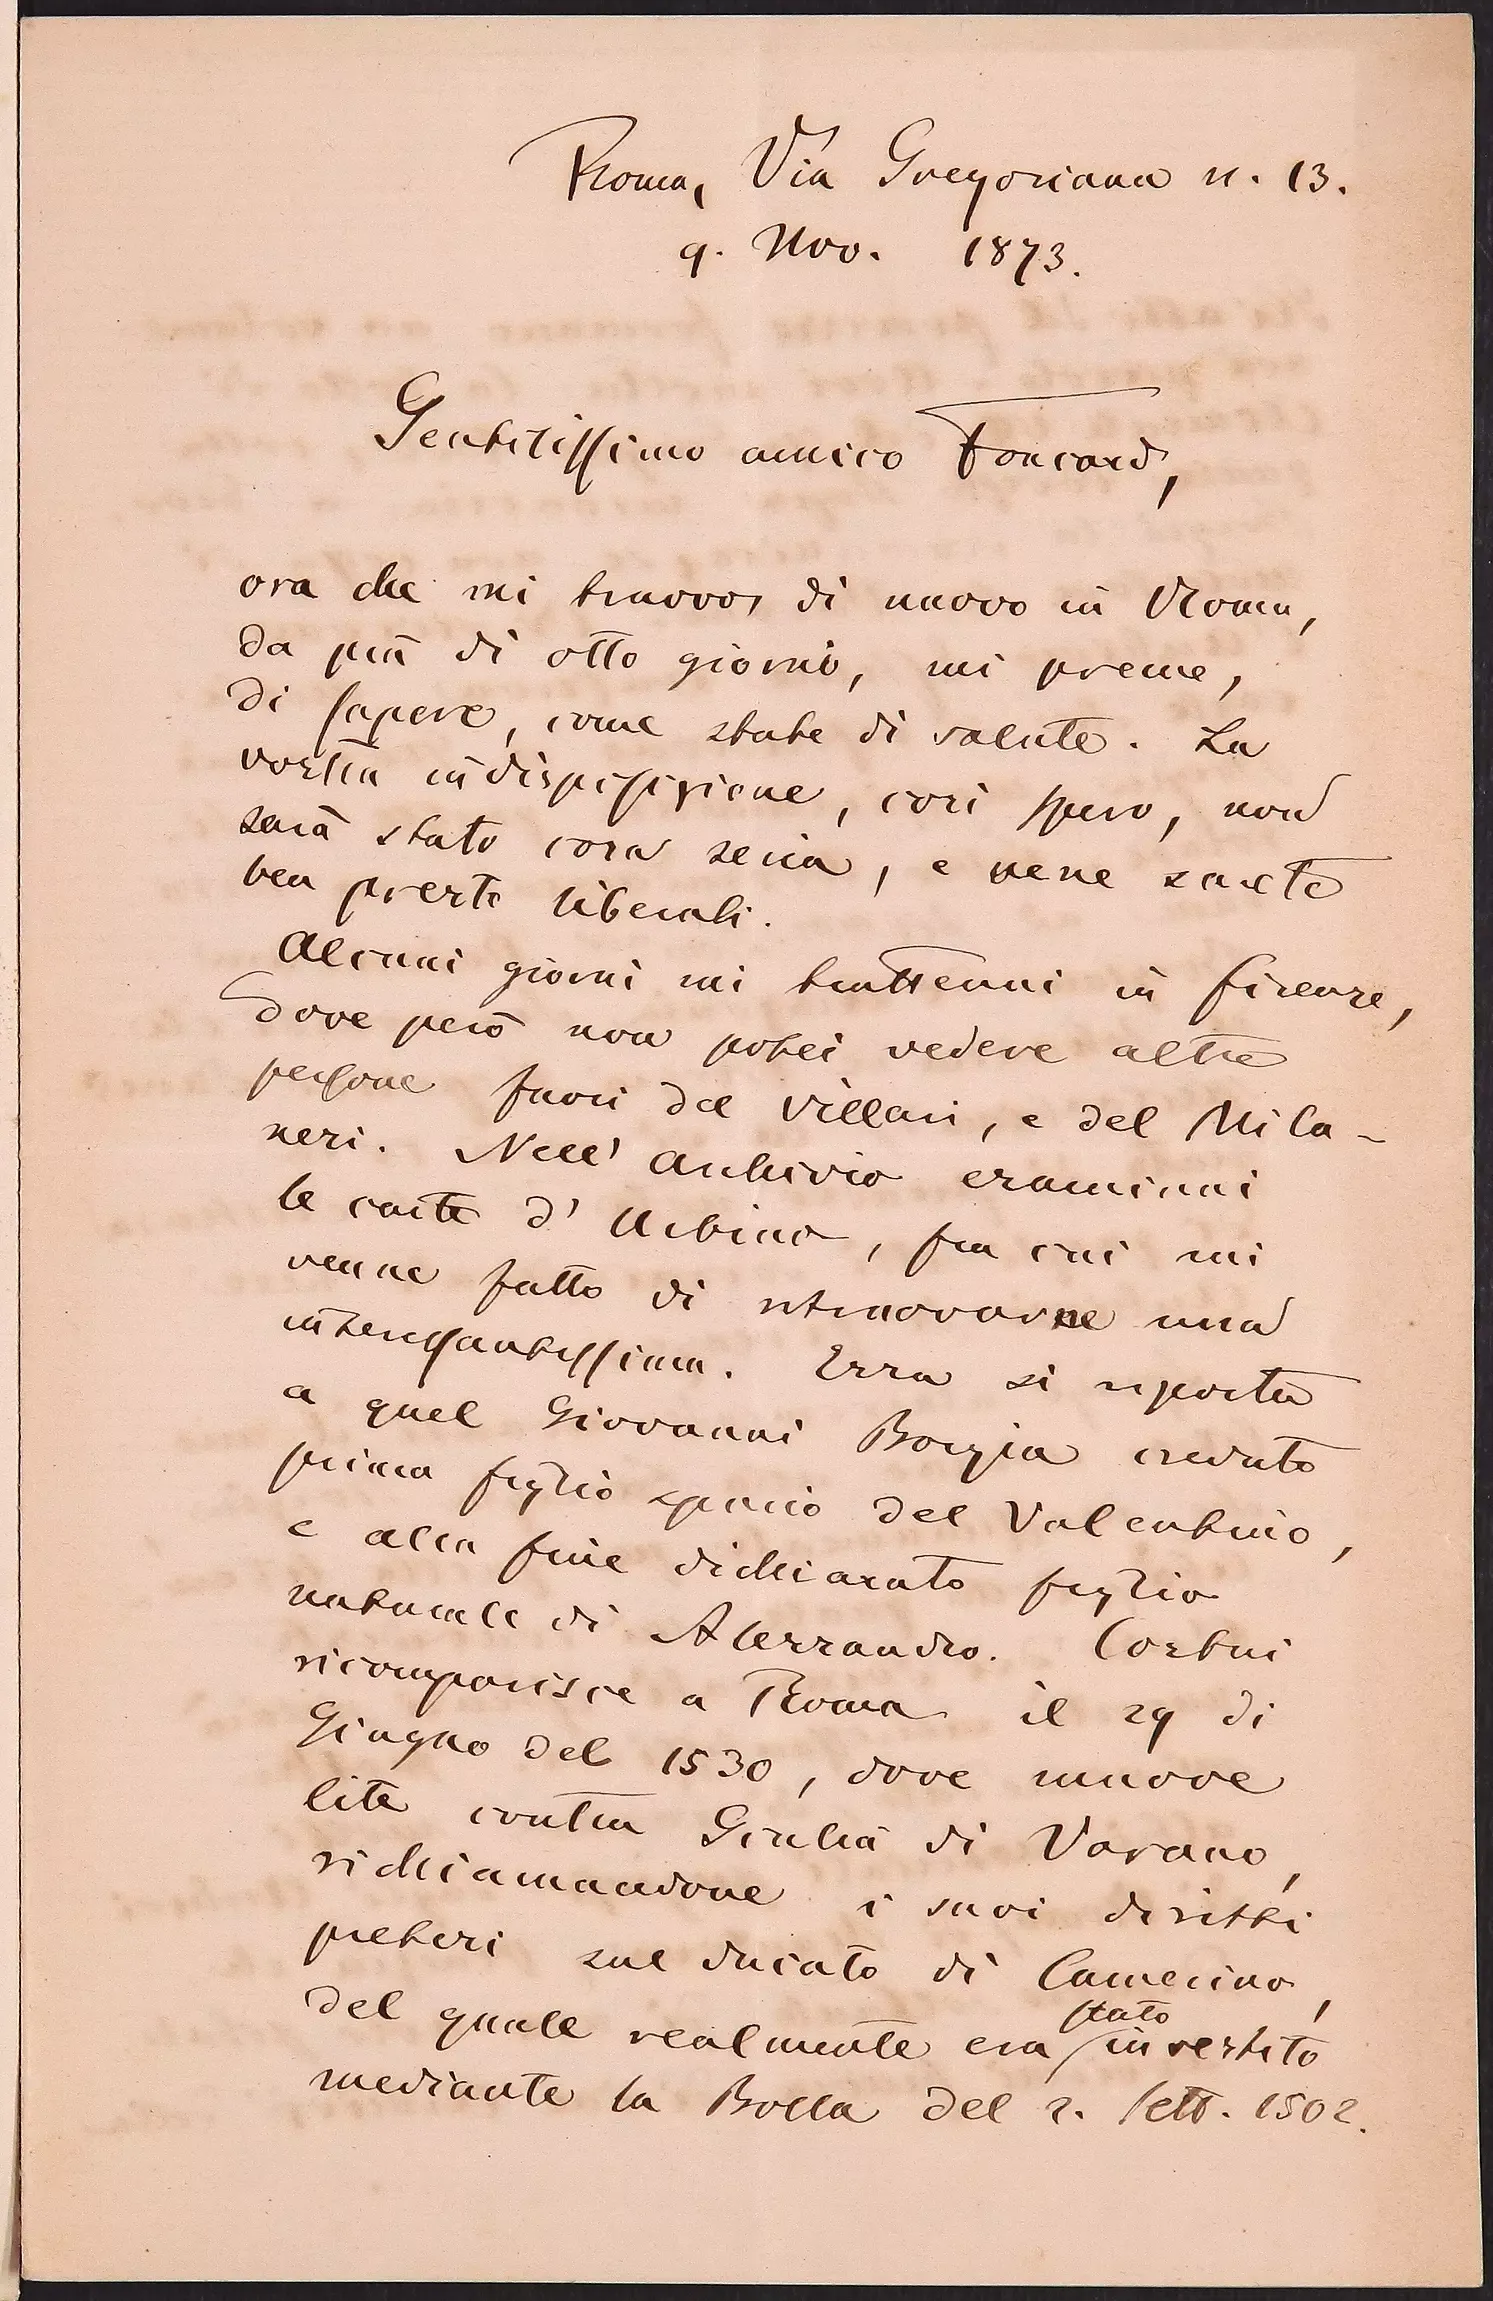 Roma, Via Gregoriana n. 13.
9. Nov. 1873.
Gentilissimo amico Foucard,
ora che mi truovo di nuovo in Roma,
da più di otto giorni, mi preme,
di sapere, come state di salute. La
vostra indisposizione, così spero, non
sarà stato cosa seria, e ne sarete
ben presto liberali.
Alcuni giorni mi trattenni in Firenze,
dove però non potei vedere altre
persone fuori del Villari, e del Mila-
nesi. Nell' Archivio esaminai
le carte d' Urbino, fra cui mi
venne fatto di ritruovarne una
interessantissima. Essa si riporta
a quel Giovanni Borgia creduto
prima figlio spurio del Valentino,
e alla fine dichiarato figlio
naturale di Alessandro. Costui
ricomparisce a Roma il 29 di
Giugno del 1530, dove muove
lite contra Giulia di Varano,
richiamandone i suoi diritti
pretesi sul ducato di Camerino,
del quale realmente era stato investito
mediante la Bolla del 2. Sett. 1502.